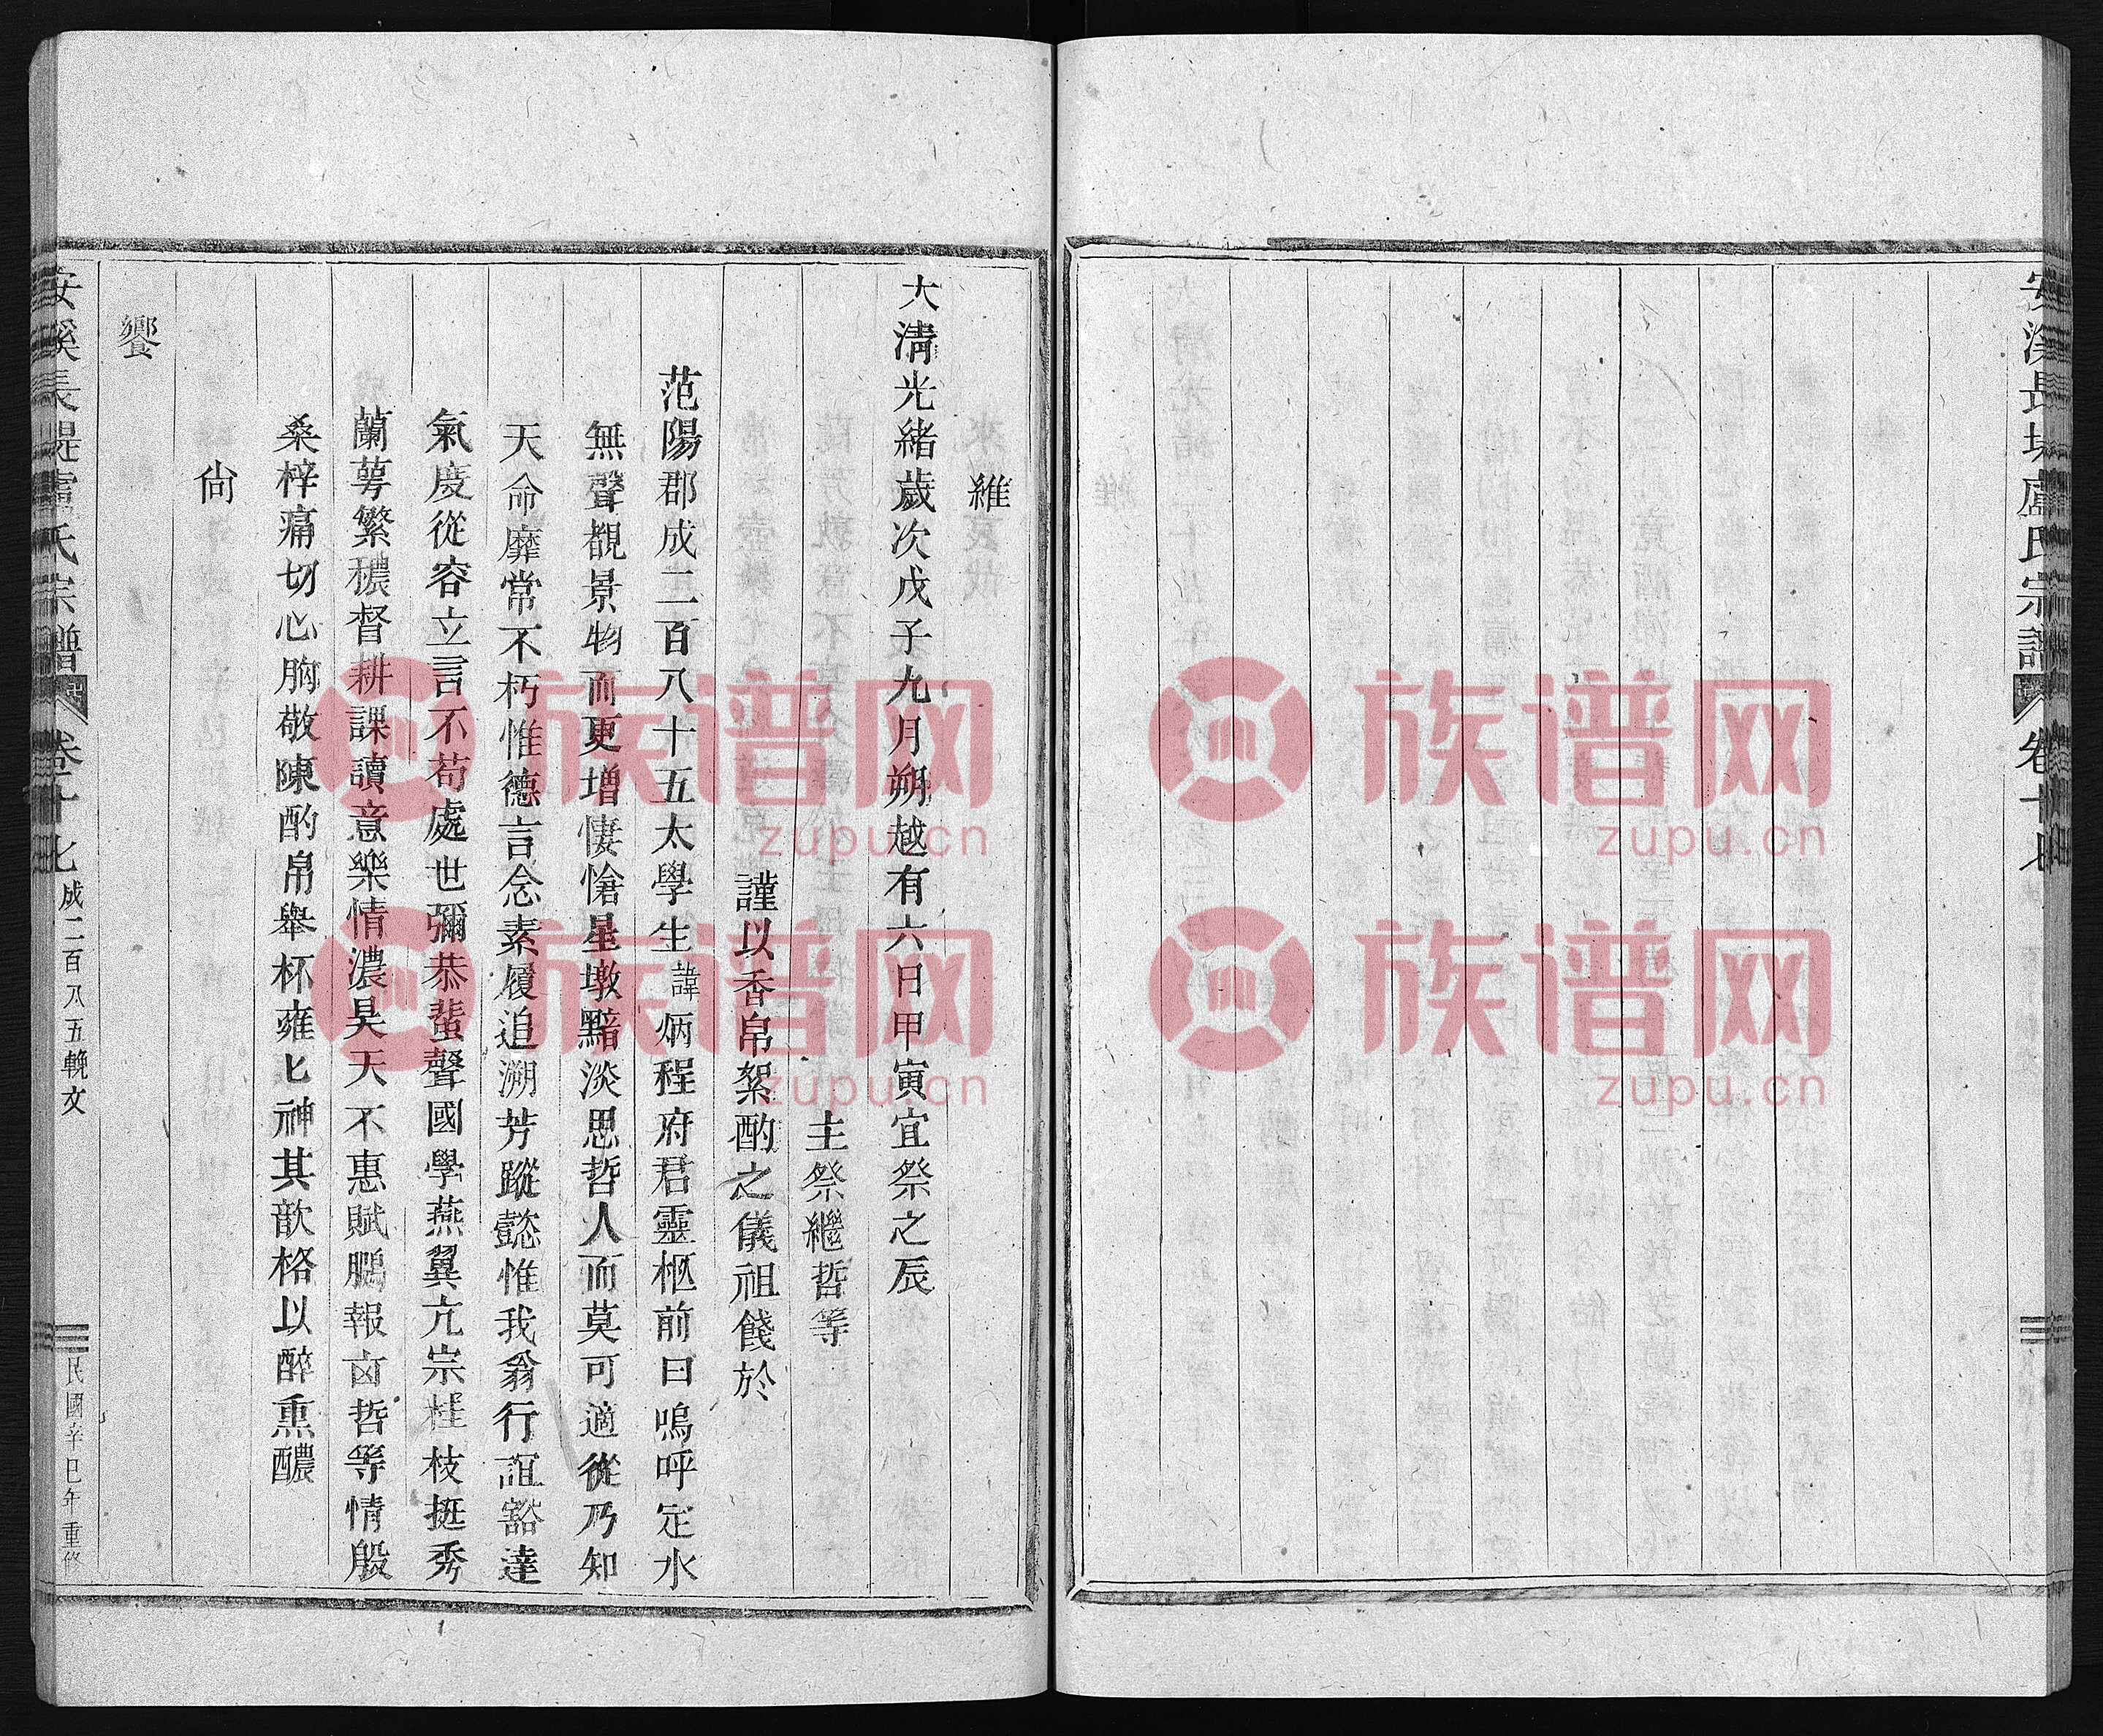 安溪長堤盧氏宗譜 卷十七
維
大清光緒歲次戊子九月朔越有六日甲寅宜祭之辰
主祭繼哲等
謹以香帛絮酌之儀祖餞於
范陽郡成二百八十五太學生諱炳程府君靈柩前曰嗚呼定水
無聲觀景物而更增悽愴星墩黯淡思哲人而莫可適從乃知
天命靡常不朽惟德言念素履追溯芳蹤懿惟我翁行誼豁達
氣度從容立言不苟處世彌恭蜚聲國學燕翼亢宗桂枝挺秀
蘭蕚繁穠督耕課讀意樂情濃昊天不惠賦鵬報卤哲等情殷
桑梓痛切心胸敬陳酌帛舉杯雍匕神其歆格以醉熏醲
尙
饗
安溪長堤盧氏宗譜 卷十七 成二百八五輓文 民國辛巳年重修
族谱网
zupu.cn
族谱网
zupu.cn
族谱网
zupu.cn
族谱网
zupu.cn